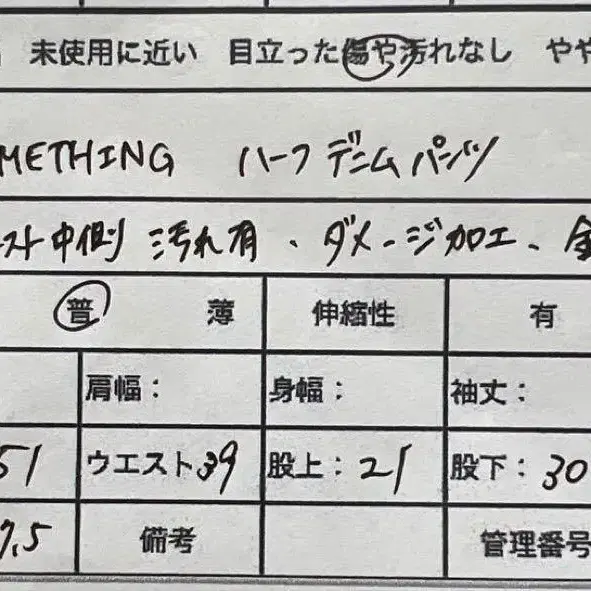 未使用に近い 目立った傷や汚れなし やや
METHING ハーフデニムパンツ
スト中側 汚れ有、ダメージ加工、全
普 薄 伸縮性 有
肩幅： 身幅： 袖丈：
51 ウエスト39 股上：21 股下：30
7.5 備考 管理番号